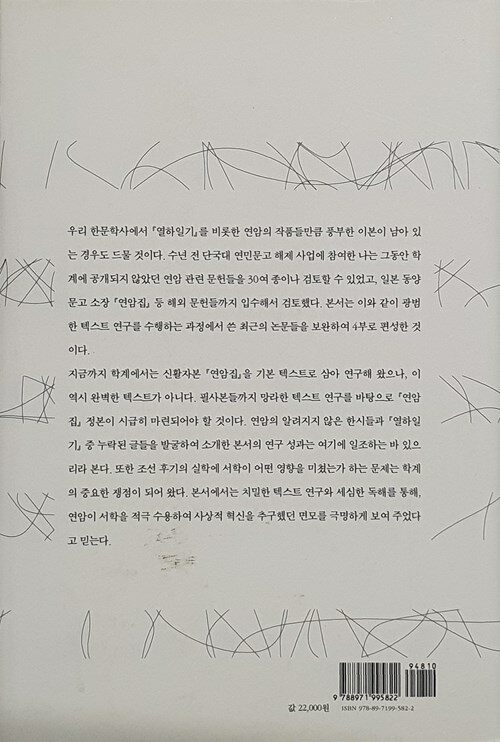 우리 한문학사에서 『열하일기』를 비롯한 연암의 작품들만큼 풍부한 이본이 남아 있
는 경우도 드물 것이다. 수년 전 단국대 연민문고 해제 사업에 참여한 나는 그동안 학
계에 공개되지 않았던 연암 관련 문헌들을 30여 종이나 검토할 수 있었고, 일본 동양
문고 소장 『연암집』 등 해외 문헌들까지 입수해서 검토했다. 본서는 이와 같이 광범
한 텍스트 연구를 수행하는 과정에서 쓴 최근의 논문들을 보완하여 4부로 편성한 것
이다.
지금까지 학계에서는 신활자본 『연암집』을 기본 텍스트로 삼아 연구해 왔으나, 이
역시 완벽한 텍스트가 아니다. 필사본들까지 망라한 텍스트 연구를 바탕으로 『연암
집』 정본이 시급히 마련되어야 할 것이다. 연암의 알려지지 않은 한시들과 『열하일
기』 중 누락된 글들을 발굴하여 소개한 본서의 연구 성과는 여기에 일조하는 바 있으
리라 본다. 또한 조선 후기의 실학에 서학이 어떤 영향을 미쳤는가 하는 문제는 학계
의 중요한 쟁점이 되어 왔다. 본서에서는 치밀한 텍스트 연구와 세심한 독해를 통해,
연암이 서학을 적극 수용하여 사상적 혁신을 추구했던 면모를 극명하게 보여 주었다
고 믿는다.
94810
9 788971 995822
값 22,000원 ISBN 978-89-7199-582-2